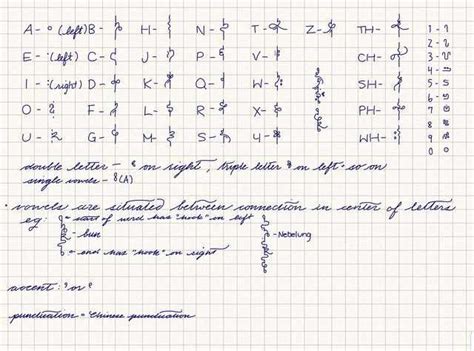 A - (left) B - H - N - T - Z - TH - 1 -
E - (left) C - J - P - V - CH - 2 -
I - (right) D - K - Q - W - SH - 3 -
O - F - L - R - X - PH - 4 -
U - G - M - S - Y - WH - 5 -
6 -
7 -
8 -
9
0
double letter - on right, triple letter on left - so on
single vowels - (A)
• vowels are situated between connection in center of letters
eg: start of word has "hook" on left
- bun
- Nebelung
end has "hook" on right
accent: or
punctuation = Chinese punctuation